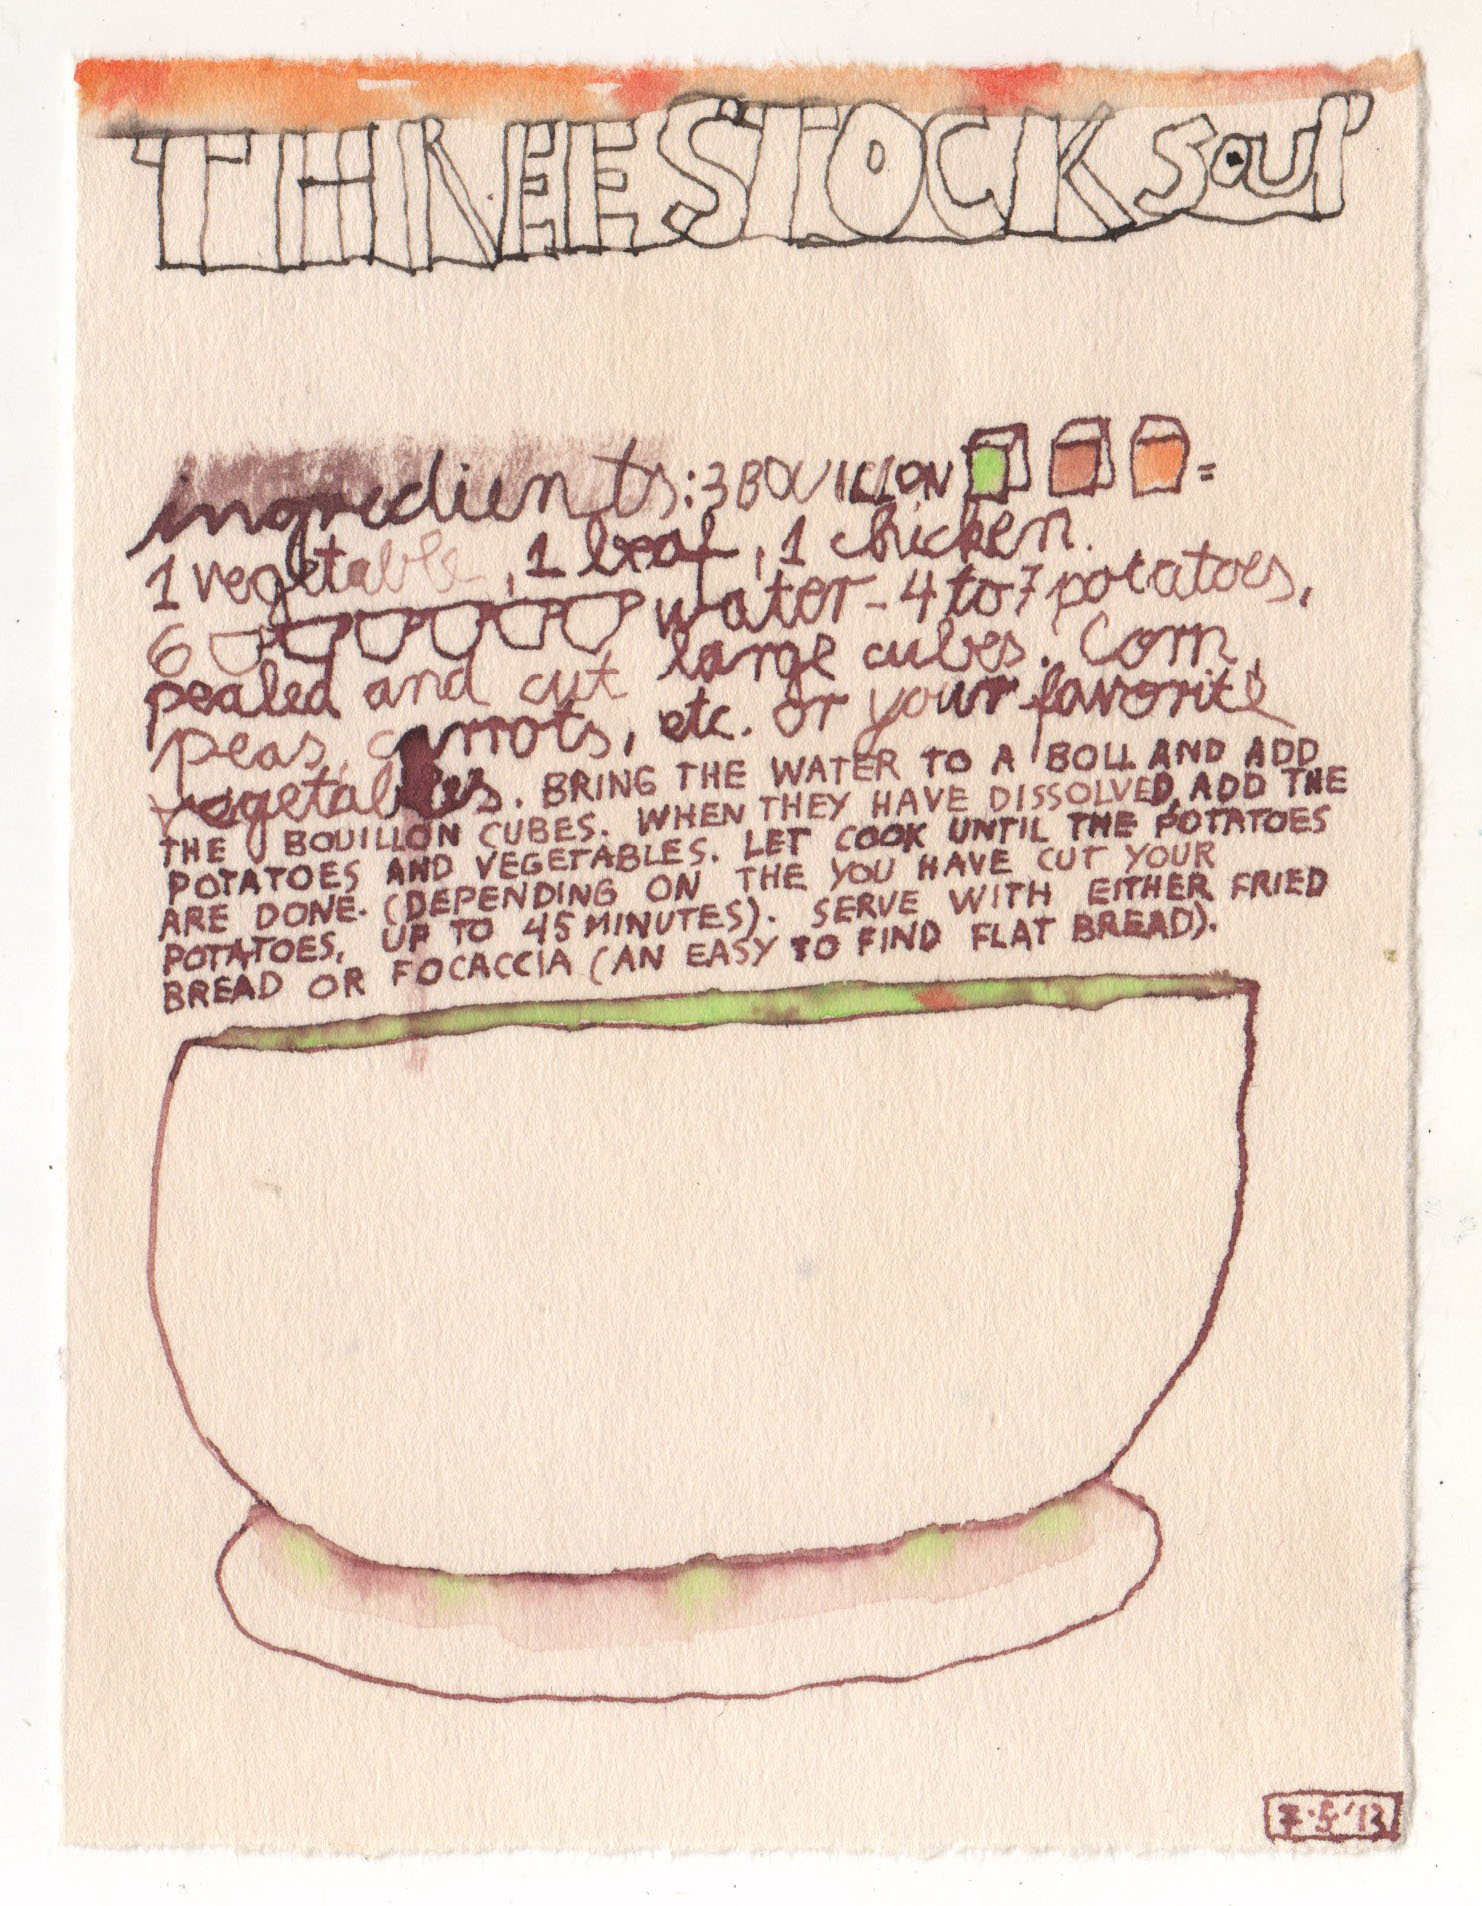 THREE STOCK SOUP
ingredients: 3 BOUILLON =
1 vegetable, 1 beaf, 1 chicken.
6 water - 4 to 7 potatoes,
pealed and cut large cubes. Corn,
peas, carrots, etc. or your favorite
vegetables. BRING THE WATER TO A BOLL AND ADD
THE BOUILLON CUBES. WHEN THEY HAVE DISSOLVED, ADD THE
POTATOES AND VEGETABLES. LET COOK UNTIL THE POTATOES
ARE DONE. (DEPENDING ON THE YOU HAVE CUT YOUR
POTATOES, UP TO 45 MINUTES). SERVE WITH EITHER FRIED
BREAD OR FOCACCIA (AN EASY TO FIND FLAT BREAD).